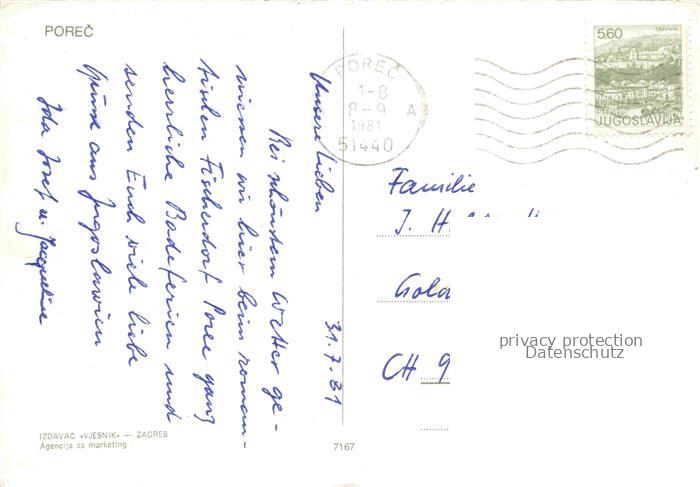 POREČ
31.7.81
Unsere Lieben
Bei schönstem Wetter ge-
niessen wir hier beim roman-
tischen Fischerdorf Porec ganz
herrliche Badeferien und
senden Euch viele liebe
Grüsse aus Jugoslawien
Ida Josef u. Jacqueline
IZDAVAČ «VJESNIK» — ZAGREB
Agencija za marketing
7167
POREČ
1-8
8-9 A
1981
51440
5.60
TRAVNIK
JUGOSLAVIJA
Familie
J. H
Gola
CH 9
privacy protection
Datenschutz